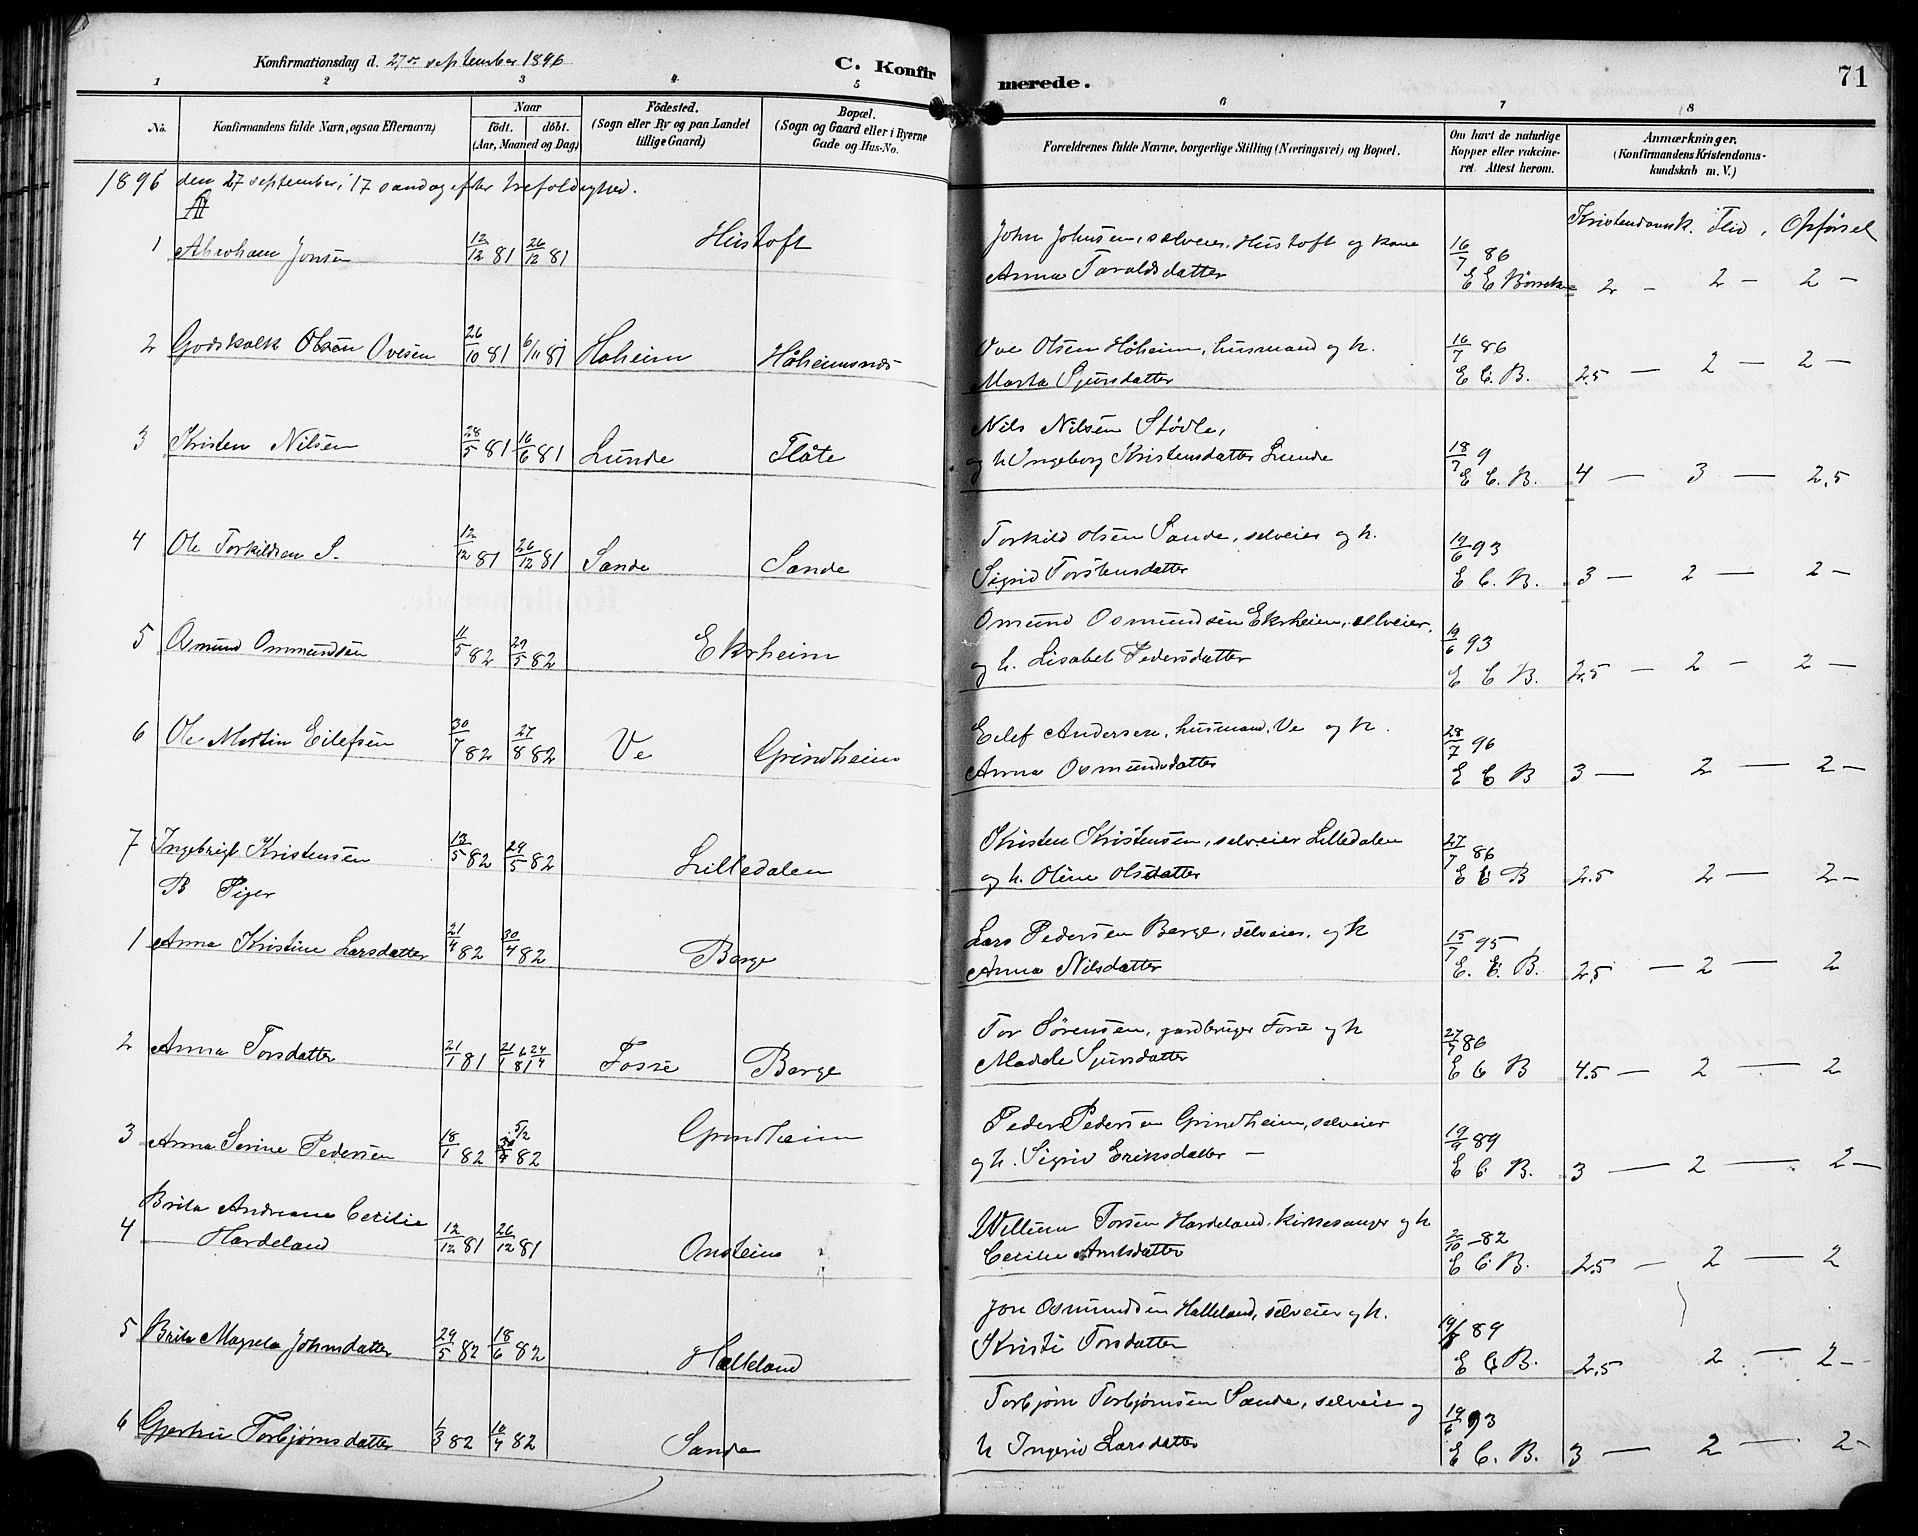 71
Konfirmationsdag d. 27de september 1896
C. Konfirmerede.
1 2 3 4 5 6 7 8
No.
Konfirmandens fulde Navn, ogsaa Efternavn)
Naar
födt. döbt.
(Aar, Maaned og Dag)
Födested.
(Sogn eller By og paa Landet
tillige Gaard)
Bopæl.
(Sogn og Gaard eller i Byerne
Gade og Hus-No.
Forældrenes fulde Navne, borgerlige Stilling (Næringsvei) og Bopæl.
Om havt de naturlige
Kopper eller vakcine-
ret. Attest herom.
Anmærkninger.
(Konfirmandens Kristendoms-
kundskab m. V.)
1896 den 27 september, 17 søndag efter trefoldighed.
Kristendomsk. Flid, Opførsel
1 Abraham Jonsen 12/12 81 26/12 81 Hustoft
John Johnsen, selveier, Hustoft og kone
Anna Taraldsdatter
16/7 86
2 - 2 - 2 -
2 Godskalk Olsen Ovesen 26/10 81 6/11 81 Høheim Høheimsnes
Ove Olsen Høheim, husmand og h.
Marta Sjursdatter
16/7 86
E C. B. 2.5 - 2 - 2 -
3 Kristen Nilsen 28/5 81 16/6 81 Lunde Flåte
Nils Nilsen Stødle,
og h Ingeborg Kristensdatter Lunde
18/7 9
E C. B. 4 - 3 - 2,5
4 Ole Torkildsen S. 12/12 81 26/12 81 Sande Sande
Torkild Olsen Sande, selveier og h.
Sigrid Torstensdatter
19/6 93
E C. B. 3 - 2 - 2 -
5 Osmund Ommundsen 11/5 82 29/5 82 Ekrheim
Omund Osmundsen Ekrheim, selveier,
og h. Lisabet Pedersdatter
19/6 93
E C B. 2.5 - 2 - 2 -
6 Ole Martin Eilefsen 30/7 82 27/8 82 Ve Grindheim
Eilef Andersen, husmand, Ve og h.
Anna Osmundsdatter
28/7 96
E C B 3 - 2 - 2 -
7 Ingebrigt Kristensen 13/5 82 29/5 82 Lilledalen
Kristen Kristensen, selveier Lilledalen
og h. Oline Olsdatter
27/7 86
E C B 2.5 2 - 2 -
B Piger
1 Anna Kristine Larsdatter 21/4 82 30/4 82 Berge
Lars Pedersen Berge, selveier, og h
Anna Nilsdatter
15/7 95
E. C. B. 2.5 - 2 - 2
2 Anna Torsdatter 21/1 81 Fosse Berge
Tor Sørensen, gardbruger Fosse og h
Madele Sjursdatter
27/7 86
E C B 4.5 - 2 - 2
3 Anna Serine Pedersen 18/1 82 5/2 82 Grindheim
Peder Pedersen Grindheim, selveier
og h. Sigrid Eriksdatter -
19/9 89
E C. B. 3 - 2 - 2 -
4 Brita Andreane Cecilie
Hardeland 12/12 81 26/12 81 Onsteins
Willum Torsen Hardeland, kirkesanger og h
Cecilie Amlsdatter
2/10 - 82
E C B. 2.5 - 2 - 2
5 Brita Magreta Johnsdatter 29/5 82 18/6 82 Halleland
Jon Osmundsen Halleland, selveier og h.
Kristi Torsdatter
89
E C B. 2.5 2 - 2 -
6 Gjertru Torbjørnsdatter 1/3 82 10/4 82 Sande
Torbjørn Torbjørnsen Sande, selveier og
h Ingerid Larsdatter
19/6 93
E C. B. 3 - 2 - 2 -